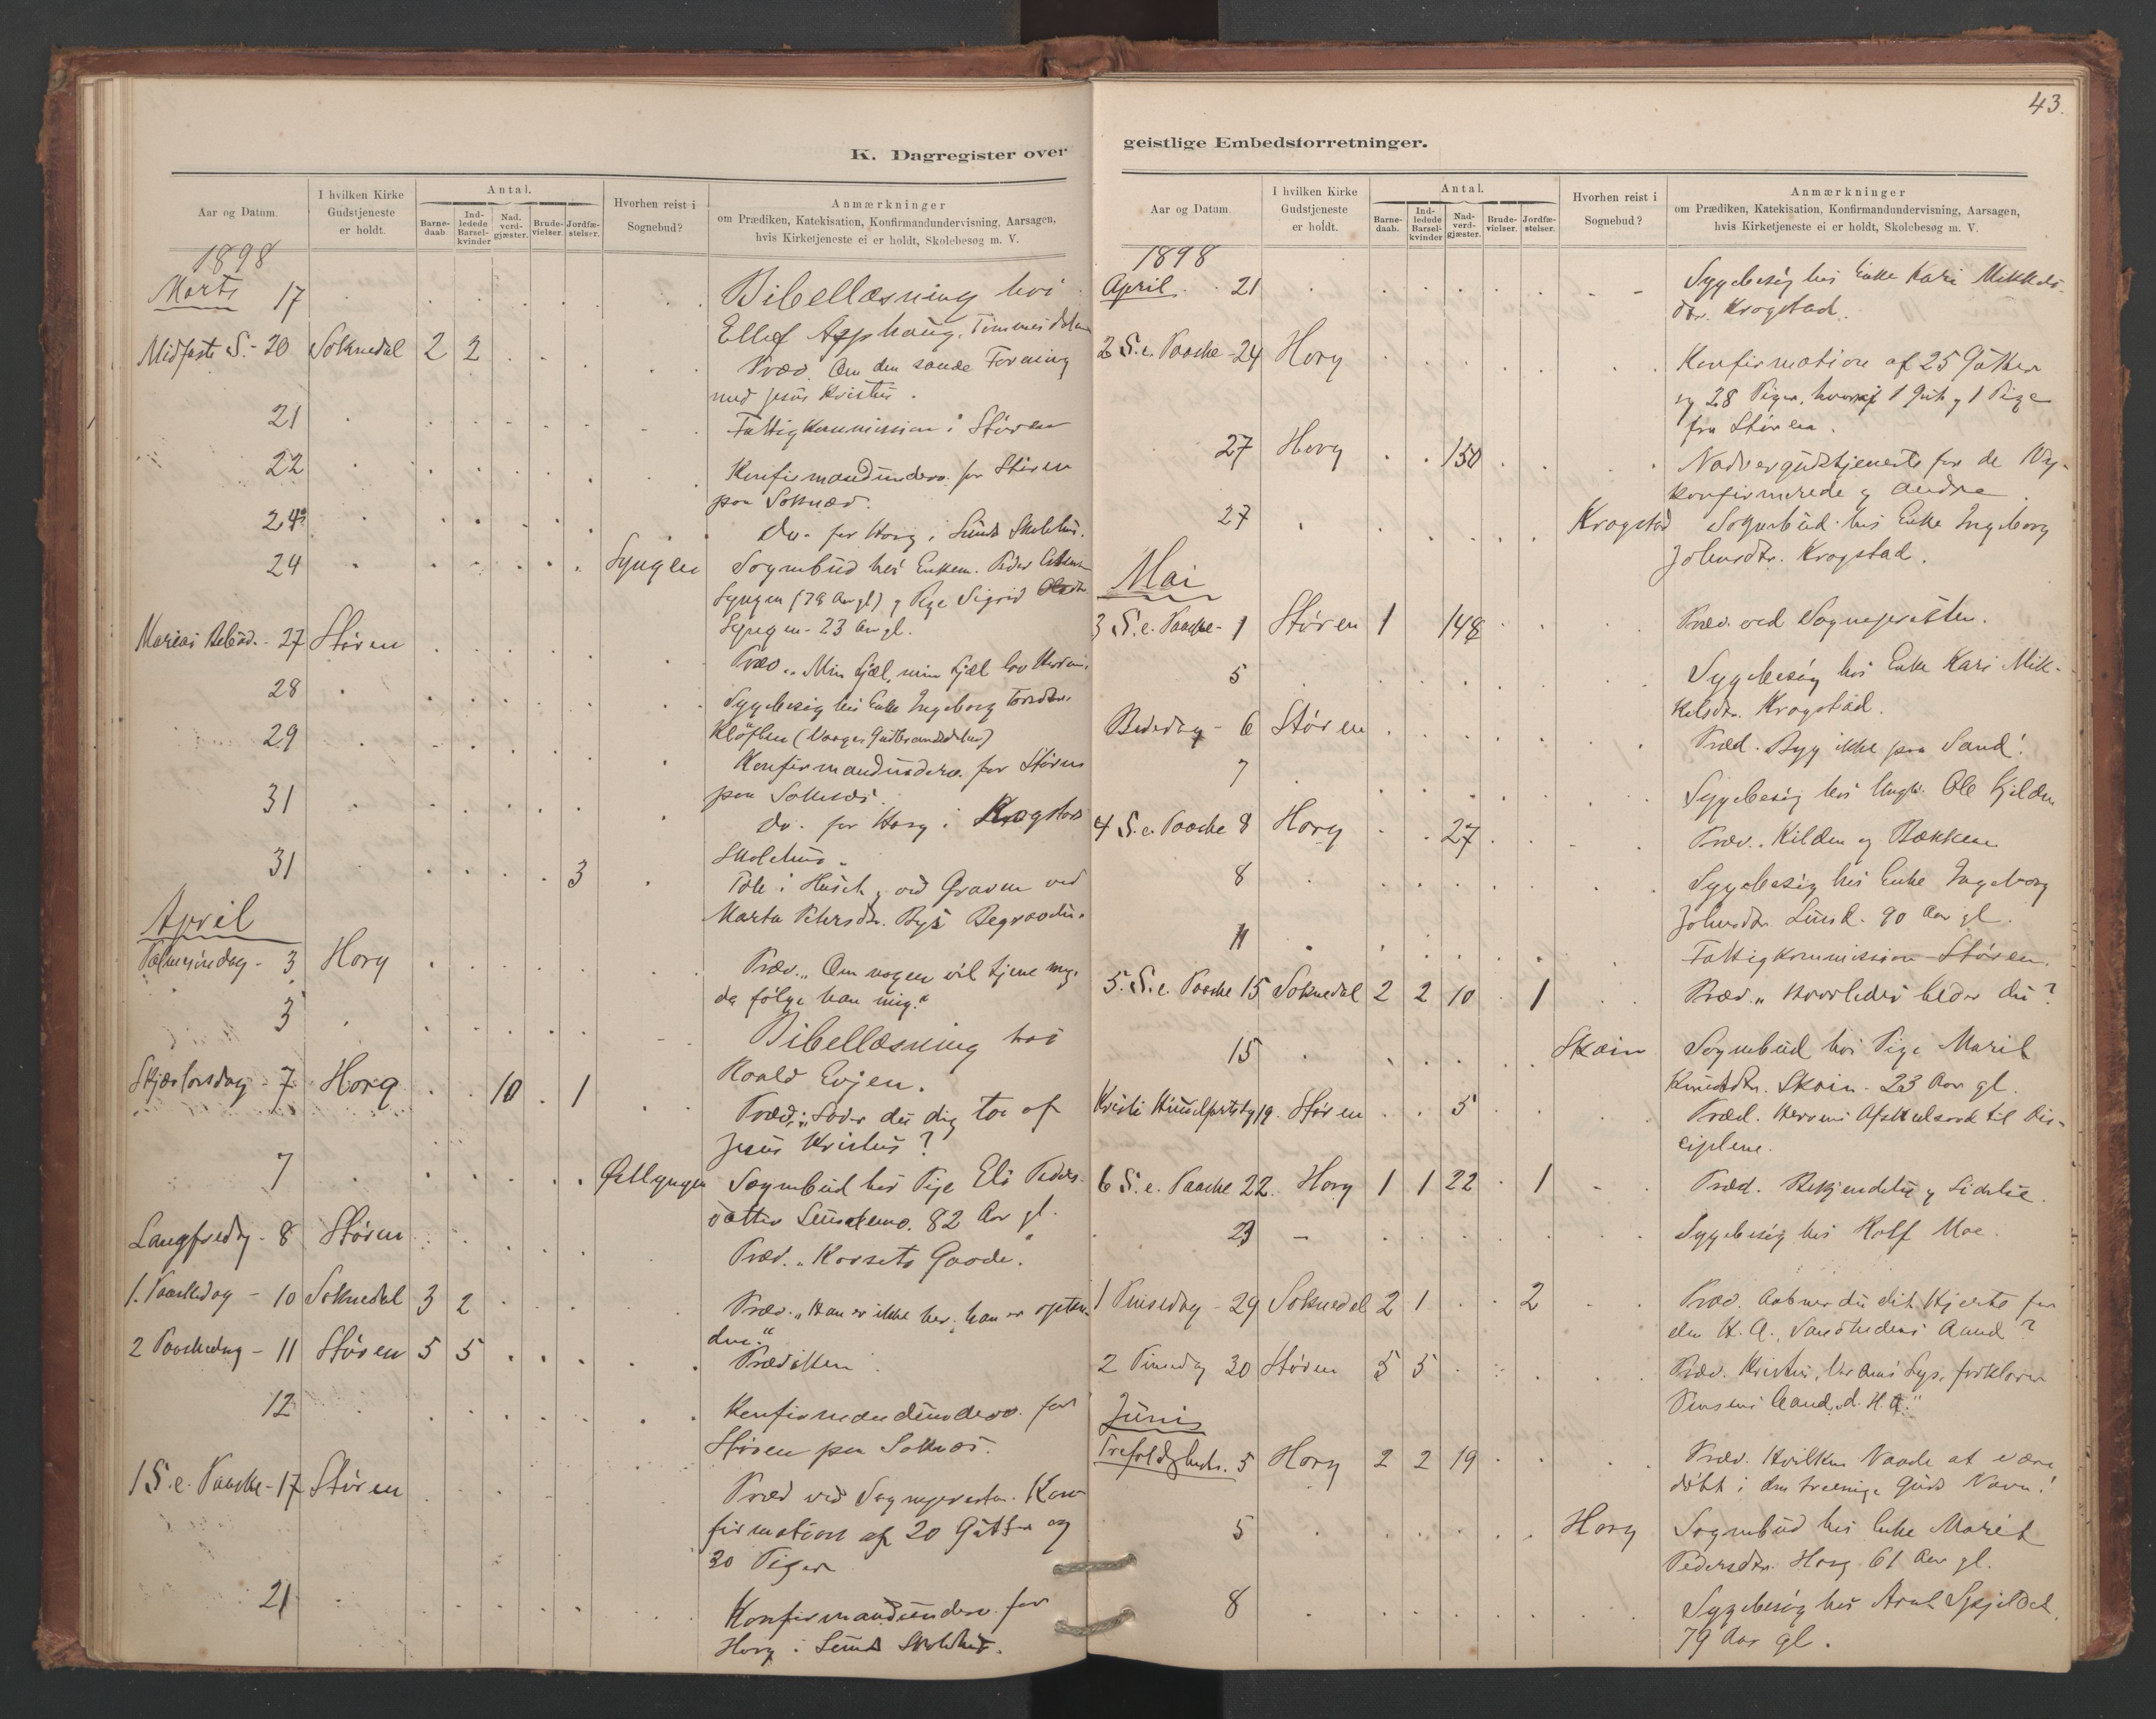 K. Dagregister over
Aar og Datum.
I hvilken Kirke
Gudstjeneste
er holdt.
Antal.
Barne-
daab.
Ind-
ledede
Barsel-
kvinder
Nad-
verd-
gjæster.
Brude-
vielser.
Jordfæ-
stelser.
Hvorhen reist i
Sognebud?
Anmærkninger
om Prædiken, Katekisation, Konfirmandundervisning, Aarsagen,
hvis Kirketjeneste ei er holdt, Skolebesøg m. V.
1898
Marts 17 Bibellæsning hos
Ellef Asphaug,
Midfaste S. - 20 Soknedal 2 2 Præd. Om den sande Forening
med Jesus Kristus.
21 Fattigkommission i Støren
22 Konfirmandunderv. for Støren
paa Soknæs.
24 Do. for Horg i Lunds Skolehus.
24 Syngen Sognebud hos Enkem. Peder
Syngen (78 Aar gl) og Pige Sigrid
Syngen - 23 Aar gl.
Mariæ Bebud. - 27 Støren Præd. "Min Sjæl, min Sjæl lov Herren.
28 Sygebesøg hos Enke Ingeborg
29 Konfirmandunderv. for Støren
paa Soknæs.
31 Do. for Horg i Krogstad
Skolehus.
31 3 Tale i Huset og ved Graven ved
Marta Petersdtr. Bys Begravelse.
April
Palmesøndag - 3 Horg Præd. "Om nogen vil tjene mig,
da følge han mig."
5 Bibellæsning hos
Roald Evjen.
Skjærtorsdag - 7 Horg 10 1 Præd. "Lader du dig toe af
Jesus Kristus?
7 Sognebud hos Pige Eli Peders-
datter 82 Aar gl.
Langfredag - 8 Støren Præd. "Korsets Gaade."
1. Paaskedag - 10 Soknedal 3 2 Præd. "Han er ikke her, han er opstan-
den."
2 Paaskedag - 11 Støren 5 5 Prædiken
12 Konfirmandunderv. for
Støren paa Soknæs.
1 S. e. Paaske - 17 Støren Præd ved Sognepresten. Kon-
firmation af 20 Gutter og
30 Piger
21 Konfirmandunderv. for
Horg i Lunds Skolehus.
43.
geistlige Embedsforretninger.
Aar og Datum.
I hvilken Kirke
Gudstjeneste
er holdt.
Antal.
Barne-
daab.
Ind-
ledede
Barsel-
kvinder
Nad-
verd-
gjæster.
Brude-
vielser.
Jordfæ-
stelser.
Hvorhen reist i
Sognebud?
Anmærkninger
om Prædiken, Katekisation, Konfirmandundervisning, Aarsagen,
hvis Kirketjeneste ei er holdt, Skolebesøg m. V.
1898
April 21 Sygebesøg hos Enke Kari Mikkels-
dtr. Krogstad.
2 S. e. Paaske - 24 Horg Konfirmation af 25 Gutter
og 28 Piger, hvoraf 1 Gut og 1 Pige
fra Støren.
27 Horg 150 Nadvergudstjeneste for de Ny-
konfirmerede og andre
27 Krogstad Sognebud hos Enke Ingeborg
Johnsdtr. Krogstad.
Mai
3 S. e. Paaske - 1 Støren 1 148 Præd. ved Sognepresten.
5 Sygebesøg hos Enke Kari Mik-
kelsdtr. Krogstad.
Bededag - 6 Støren Præd. Byg ikke paa Sand!
7 Sygebesøg hos Ungk. Ole Kjelden
4 S. e. Paaske 8 Horg 27 Præd. Kilden og Bækken
8 Sygebesøg hos Enke Ingeborg
Johnsdtr. Lund. 90 Aar gl.
11 Fattigkommission Støren.
5. S. e. Paaske 15 Soknedal 2 2 10 1 Præd. "Hvorledes beder du?
15 Skoin Sognebud hos Pige Marit
Knudsdtr. Skoin - 23 Aar gl.
Kristi Himmelfartsdag 19. Støren 5 Præd. Herrens Afskedsord til Dis-
ciplene.
6 S. e. Paaske 22. Horg 1 1 22 1 Præd. Bekjendelse og Lidelse.
23 Sygebesøg hos Rolf Moe.
1 Pinsedag - 29 Soknedal 2 1 2 Præd. Aabner du dit Hjerte for
den H. A., Sandhedens Aand?
2 Pinsedag 30 Støren 5 5 Præd. Kristus, Verdens Lys, forklarer
Pinsens Aand, d. H. A."
Junis
Trefoldigheds. 5 Horg 2 2 19 Præd. Hvilken Naade at være
døbt i den treenige Guds Navn!
5 Horg Sognebud hos Enke Marit
Pedersdtr. Horg 61 Aar gl.
8 Sygebesøg hos Arnt
79 Aar gl.